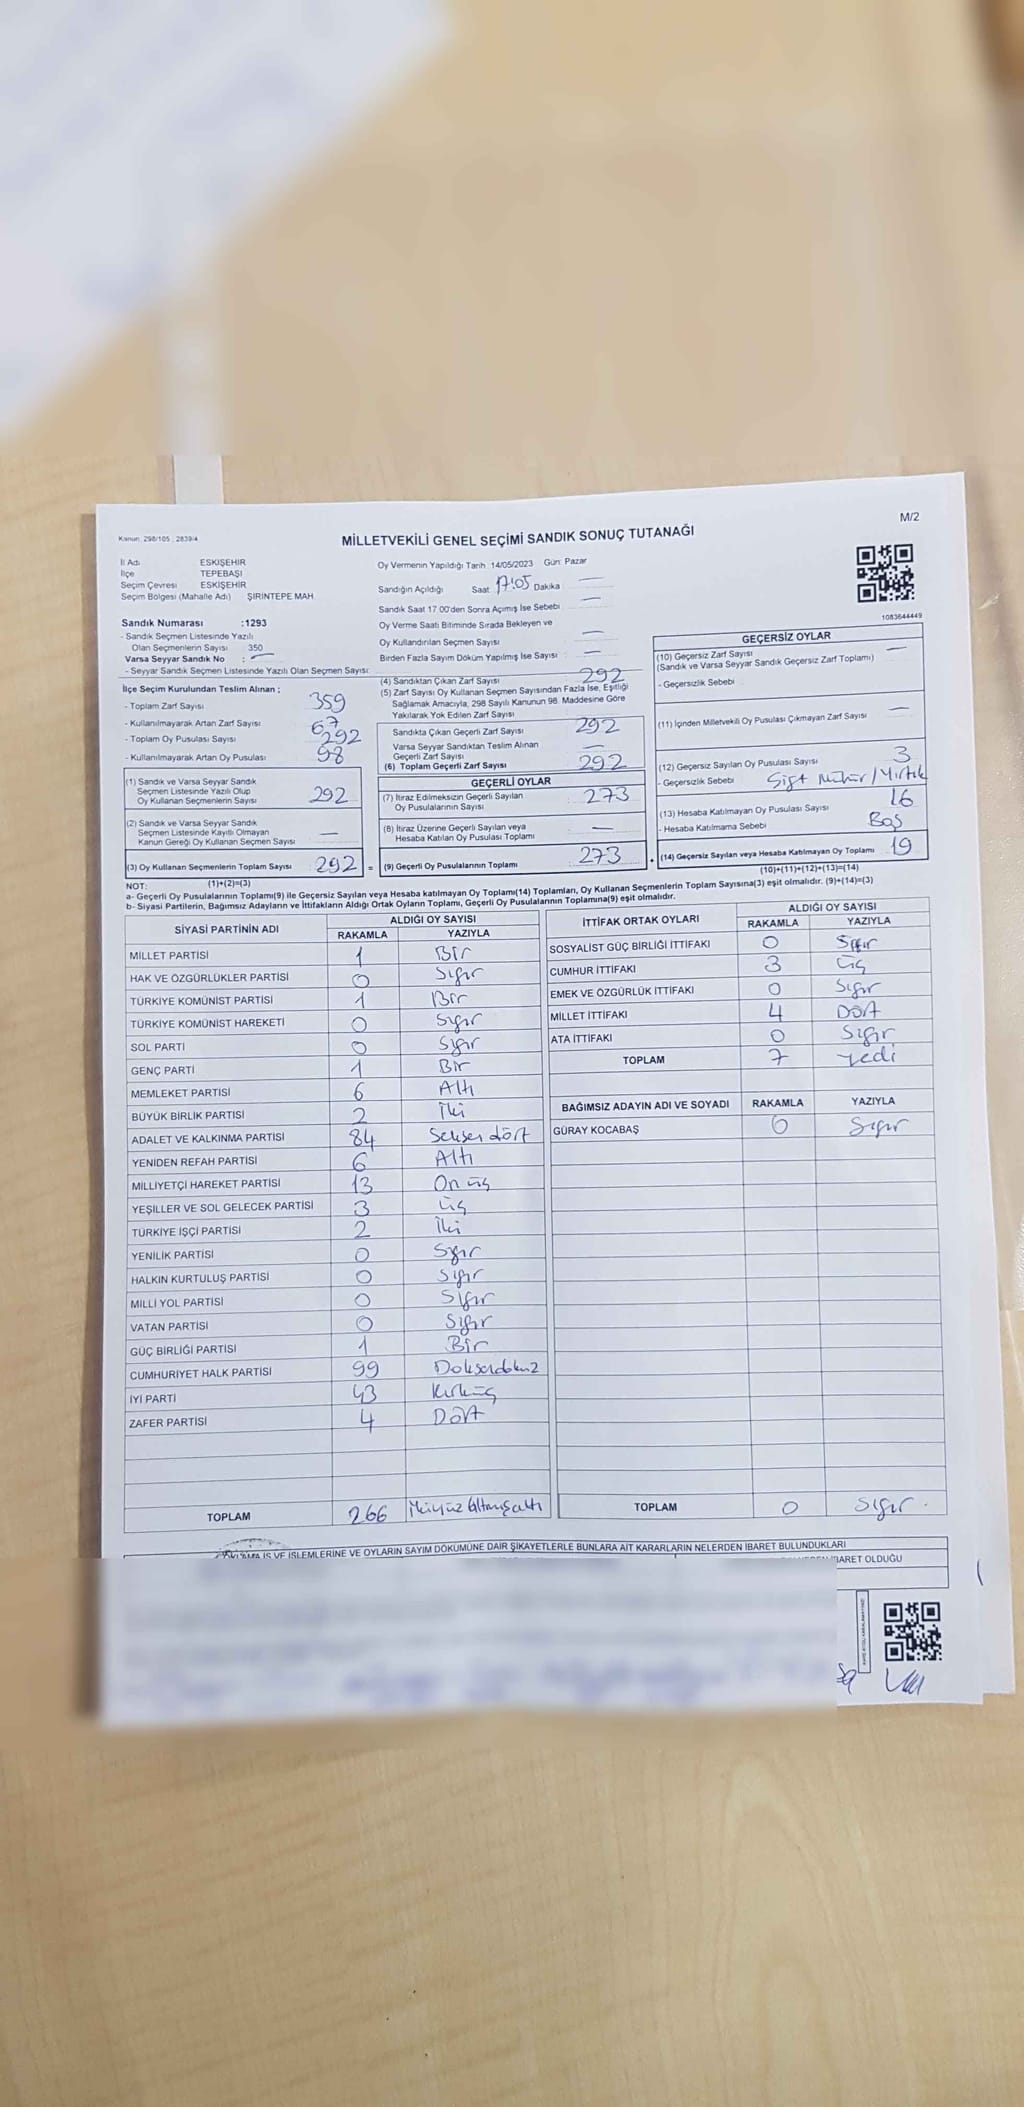 M/2
Kanun: 298/105 ; 2839/4
MİLLETVEKİLİ GENEL SEÇİMİ SANDIK SONUÇ TUTANAĞI
İl Adı ESKİŞEHİR
İlçe TEPEBAŞI
Seçim Çevresi ESKİŞEHİR
Seçim Bölgesi (Mahalle Adı) ŞİRİNTEPE MAH.
Sandık Numarası :1293
- Sandık Seçmen Listesinde Yazılı
Olan Seçmenlerin Sayısı 350
Varsa Seyyar Sandık No : —
- Seyyar Sandık Seçmen Listesinde Yazılı Olan Seçmen Sayısı:
Oy Vermenin Yapıldığı Tarih 14/05/2023 Gün: Pazar
Sandığın Açıldığı Saat 17:05 Dakika —
Sandık Saat 17.00'den Sonra Açımış İse Sebebi —
Oy Verme Saati Bitiminde Sırada Bekleyen ve
Oy Kullandırılan Seçmen Sayısı —
Birden Fazla Sayım Döküm Yapılmış İse Sayısı : —
1083644449
İlçe Seçim Kurulundan Teslim Alınan ;
- Toplam Zarf Sayısı 359
- Kullanılmayarak Artan Zarf Sayısı 67
- Toplam Oy Pusulası Sayısı 292
- Kullanılmayarak Artan Oy Pusulası 98
(1) Sandık ve Varsa Seyyar Sandık
Seçmen Listesinde Yazılı Olup
Oy Kullanan Seçmenlerin Sayısı 292
(2) Sandık ve Varsa Seyyar Sandık
Seçmen Listesinde Kayıtlı Olmayan
Kanun Gereği Oy Kullanan Seçmen Sayısı —
(3) Oy Kullanan Seçmenlerin Toplam Sayısı 292 =
(1)+(2)=(3)
(4) Sandıktan Çıkan Zarf Sayısı 292
(5) Zarf Sayısı Oy Kullanan Seçmen Sayısından Fazla İse, Eşitliği
Sağlamak Amacıyla, 298 Sayılı Kanunun 98. Maddesine Göre
Yakılarak Yok Edilen Zarf Sayısı
Sandıkta Çıkan Geçerli Zarf Sayısı 292
Varsa Seyyar Sandıktan Teslim Alınan
Geçerli Zarf Sayısı —
(6) Toplam Geçerli Zarf Sayısı 292
GEÇERLİ OYLAR
(7) İtiraz Edilmeksizin Geçerli Sayılan
Oy Pusulalarının Sayısı 273
(8) İtiraz Üzerine Geçerli Sayılan veya
Hesaba Katılan Oy Pusulası Toplamı —
(9) Geçerli Oy Pusulalarının Toplamı 273
GEÇERSİZ OYLAR
(10) Geçersiz Zarf Sayısı —
(Sandık ve Varsa Seyyar Sandık Geçersiz Zarf Toplamı)
- Geçersizlik Sebebi
(11) İçinden Milletvekili Oy Pusulası Çıkmayan Zarf Sayısı —
(12) Geçersiz Sayılan Oy Pusulası Sayısı 3
- Geçersizlik Sebebi Çift Mühür/Yırtık
(13) Hesaba Katılmayan Oy Pusulası Sayısı 16
- Hesaba Katılmama Sebebi Boş
(14) Geçersiz Sayılan veya Hesaba Katılmayan Oy Toplamı 19
(10)+(11)+(12)+(13)=(14)
NOT:
a- Geçerli Oy Pusulalarının Toplamı(9) ile Geçersiz Sayılan veya Hesaba katılmayan Oy Toplamı(14) Toplamları, Oy Kullanan Seçmenlerin Toplam Sayısına(3) eşit olmalıdır. (9)+(14)=(3)
b- Siyasi Partilerin, Bağımsız Adayların ve İttifakların Aldığı Ortak Oyların Toplamı, Geçerli Oy Pusulalarının Toplamına(9) eşit olmalıdır.
SİYASİ PARTİNİN ADI ALDIĞI OY SAYISI
RAKAMLA YAZIYLA
MİLLET PARTİSİ 1 Bir
HAK VE ÖZGÜRLÜKLER PARTİSİ 0 Sıfır
TÜRKİYE KOMÜNİST PARTİSİ 1 Bir
TÜRKİYE KOMÜNİST HAREKETİ 0 Sıfır
SOL PARTİ 0 Sıfır
GENÇ PARTİ 1 Bir
MEMLEKET PARTİSİ 6 Altı
BÜYÜK BİRLİK PARTİSİ 2 İki
ADALET VE KALKINMA PARTİSİ 84 Seksen dört
YENİDEN REFAH PARTİSİ 6 Altı
MİLLİYETÇİ HAREKET PARTİSİ 13 On üç
YEŞİLLER VE SOL GELECEK PARTİSİ 3 Üç
TÜRKİYE İŞÇİ PARTİSİ 2 İki
YENİLİK PARTİSİ 0 Sıfır
HALKIN KURTULUŞ PARTİSİ 0 Sıfır
MİLLİ YOL PARTİSİ 0 Sıfır
VATAN PARTİSİ 0 Sıfır
GÜÇ BİRLİĞİ PARTİSİ 1 Bir
CUMHURİYET HALK PARTİSİ 99 Doksandokuz
İYİ PARTİ 43 Kırküç
ZAFER PARTİSİ 4 Dört
TOPLAM 266 İkiyüz Altmışaltı
İTTİFAK ORTAK OYLARI ALDIĞI OY SAYISI
RAKAMLA YAZIYLA
SOSYALİST GÜÇ BİRLİĞİ İTTİFAKI 0 Sıfır
CUMHUR İTTİFAKI 3 Üç
EMEK VE ÖZGÜRLÜK İTTİFAKI 0 Sıfır
MİLLET İTTİFAKI 4 Dört
ATA İTTİFAKI 0 Sıfır
TOPLAM 7 Yedi
BAĞIMSIZ ADAYIN ADI VE SOYADI RAKAMLA YAZIYLA
GÜRAY KOCABAŞ 0 Sıfır
TOPLAM 0 Sıfır
İŞ VE İŞLEMLERİNE VE OYLARIN SAYIM DÖKÜMÜNE DAİR ŞİKAYETLERLE BUNLARA AİT KARARLARIN NELERDEN İBARET BULUNDUKLARI
İBARET OLDUĞU